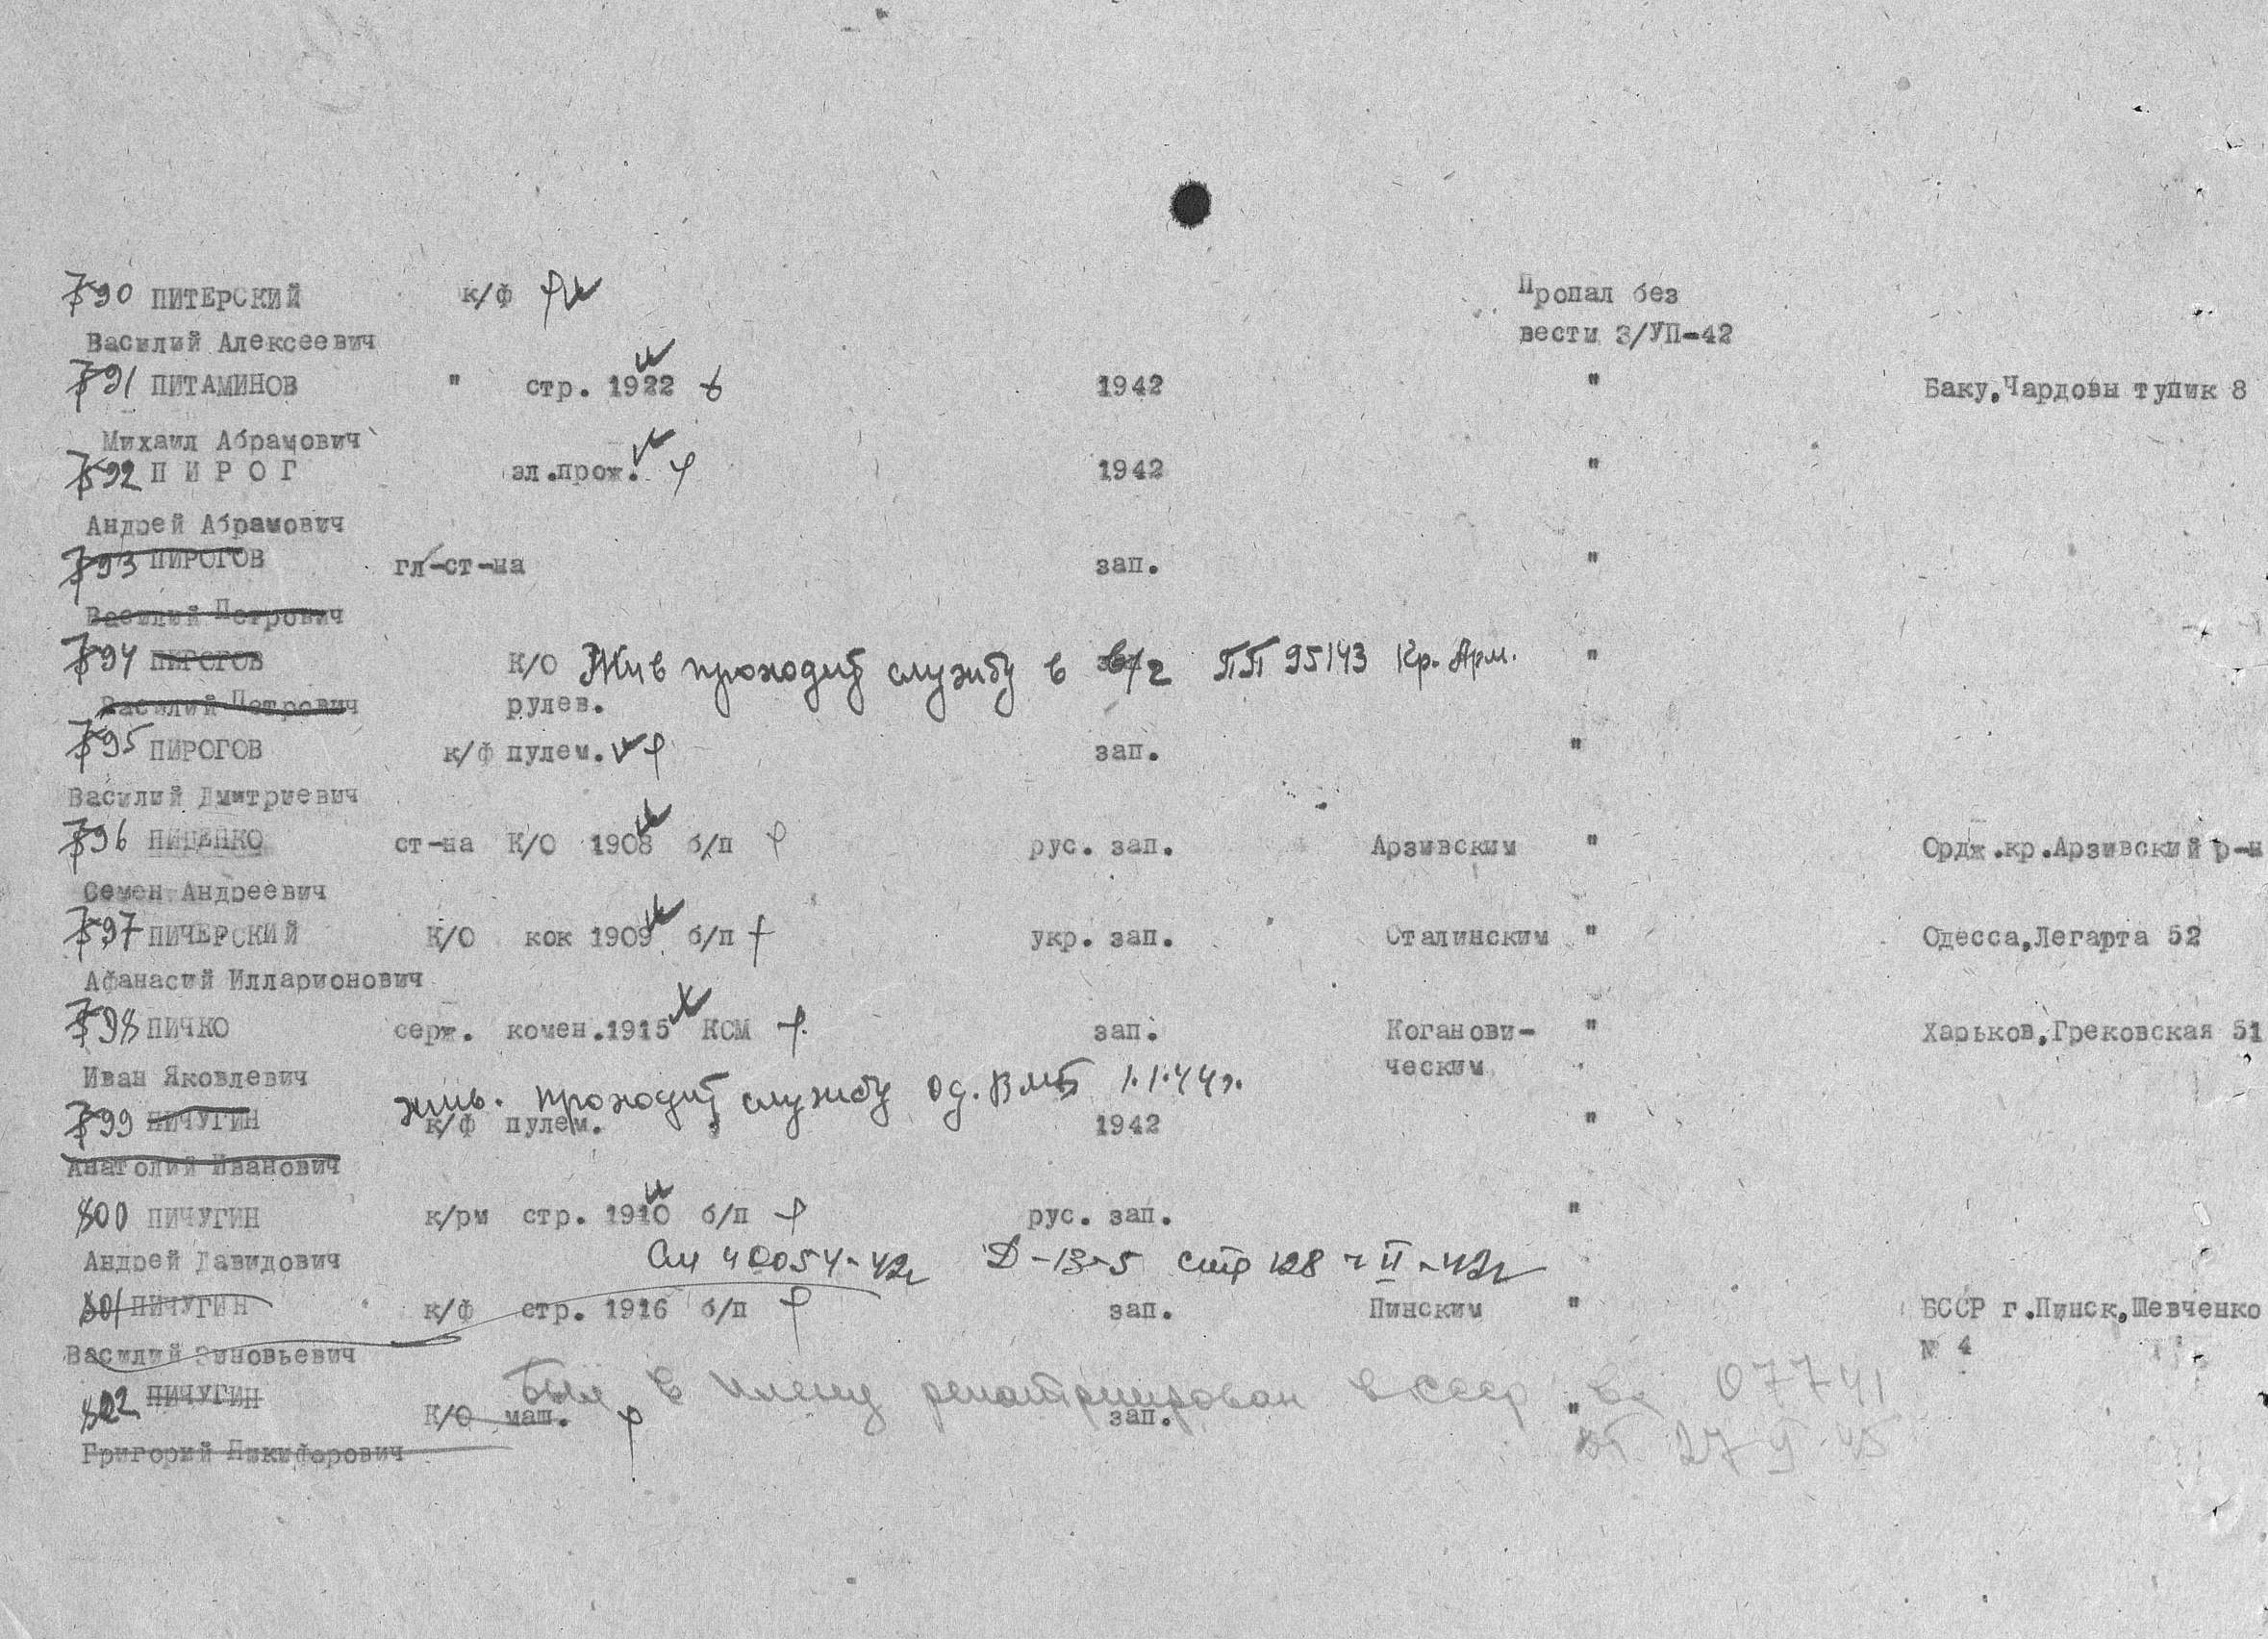 790 ПИТЕРСКИЙ к/ф Пропал без
Василий Алексеевич вести 3/УП-42
791 ПИТАМИНОВ " стр. 1922 1942 " Баку,Чардовы тупик 8
Михаил Абрамович
792 П И Р О Г эл.прож. 1942 "
Андрей Абрамович
793 ПИРОГОВ гл-ст-на зап. "
Василий Петрович
794 ПИРОГОВ К/О Жив проходит службу в в/ч ПП 95143 Кр. Арм. "
Василий Петрович рулев.
795 ПИРОГОВ к/ф пулем. зап. "
Василий Дмитриевич
796 ст-на К/О 1908 б/п рус. зап. Арзивским " Ордж.кр.Арзивский р-н
Семен Андреевич
797 ПИЧЕРСКИЙ К/О кок 1909 б/п укр. зап. Сталинским " Одесса,Легарта 52
Афанасий Илларионович
798 ПИЧКО серж. комен.1915 КСМ зап. Коганови- " Харьков,Грековская 51
Иван Яковлевич ческим
жив. проходит службу Од. ВМБ 1.1.44г.
799 ПИЧУГИН к/ф пулем. 1942 "
Анатолий Иванович
800 ПИЧУГИН к/рм стр. 1910 б/п рус. зап. "
Андрей Давидович См 40054-42г Д-13-5 стр 128 ч II-42г
801 ПИЧУГИН к/ф стр. 1916 б/п зап. Пинским " БССР г.Пинск,Шевченко
Василий Зиновьевич № 4
Был в плену репатриирован в СССР вх 07741
802 ПИЧУГИН К/О маш. зап. "
от 27 45
Григорий Никифорович